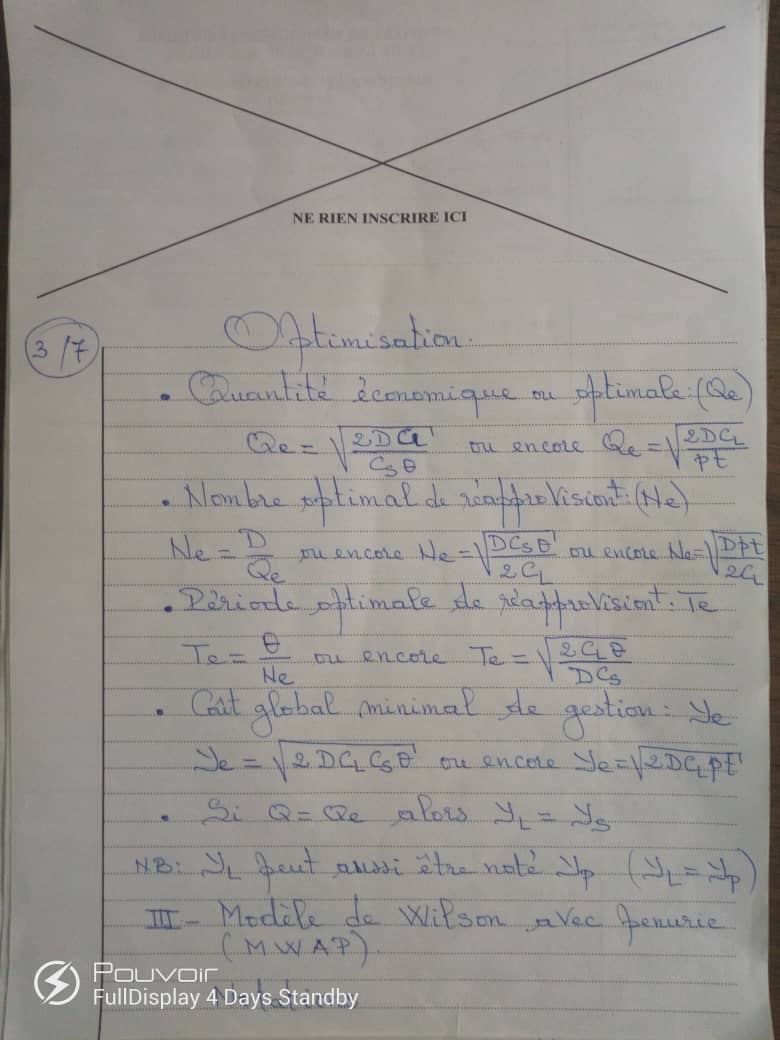 NE RIEN INSCRIRE ICI
3/7
Optimisation.
• Quantité économique ou optimale: (Qe)
Qe = √(2DCL / CSθ) ou encore Qe = √(2DCL / pt)
• Nombre optimal de réapprovision^t: (Ne)
Ne = D/Qe ou encore Ne = √(DCSθ / 2CL) ou encore Ne = √(Dpt / 2CL)
• Période optimale de réapprovision^t: Te
Te = θ/Ne ou encore Te = √(2CLθ / DCS)
• Coût global minimal de gestion: Ye
Ye = √(2DCLCSθ) ou encore Ye = √(2DCLpt)
• Si Q = Qe alors YL = YS
NB: YL peut aussi être noté Yp (YL = Yp)
III - Modèle de Wilson avec penurie
(MWAP).
Pouvoir
FullDisplay 4 Days Standby